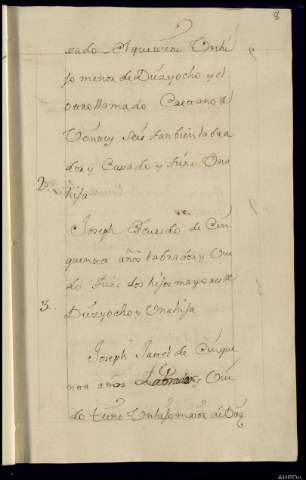 8
sado El que tiene Un hi
jo menor de Diez y ocho y el
otro llamado Caetano de
Seis tambien labra
dor y Casado y tiene Una
2. hija
Joseph de Cin
quenta años labrador y Viu
do tiene dos hijos mayores de
3. Diez y ocho y Una hija
Joseph de Cinque
nta años Labrador, Viu
do tiene Un hijo maior de Diez
AHPOu